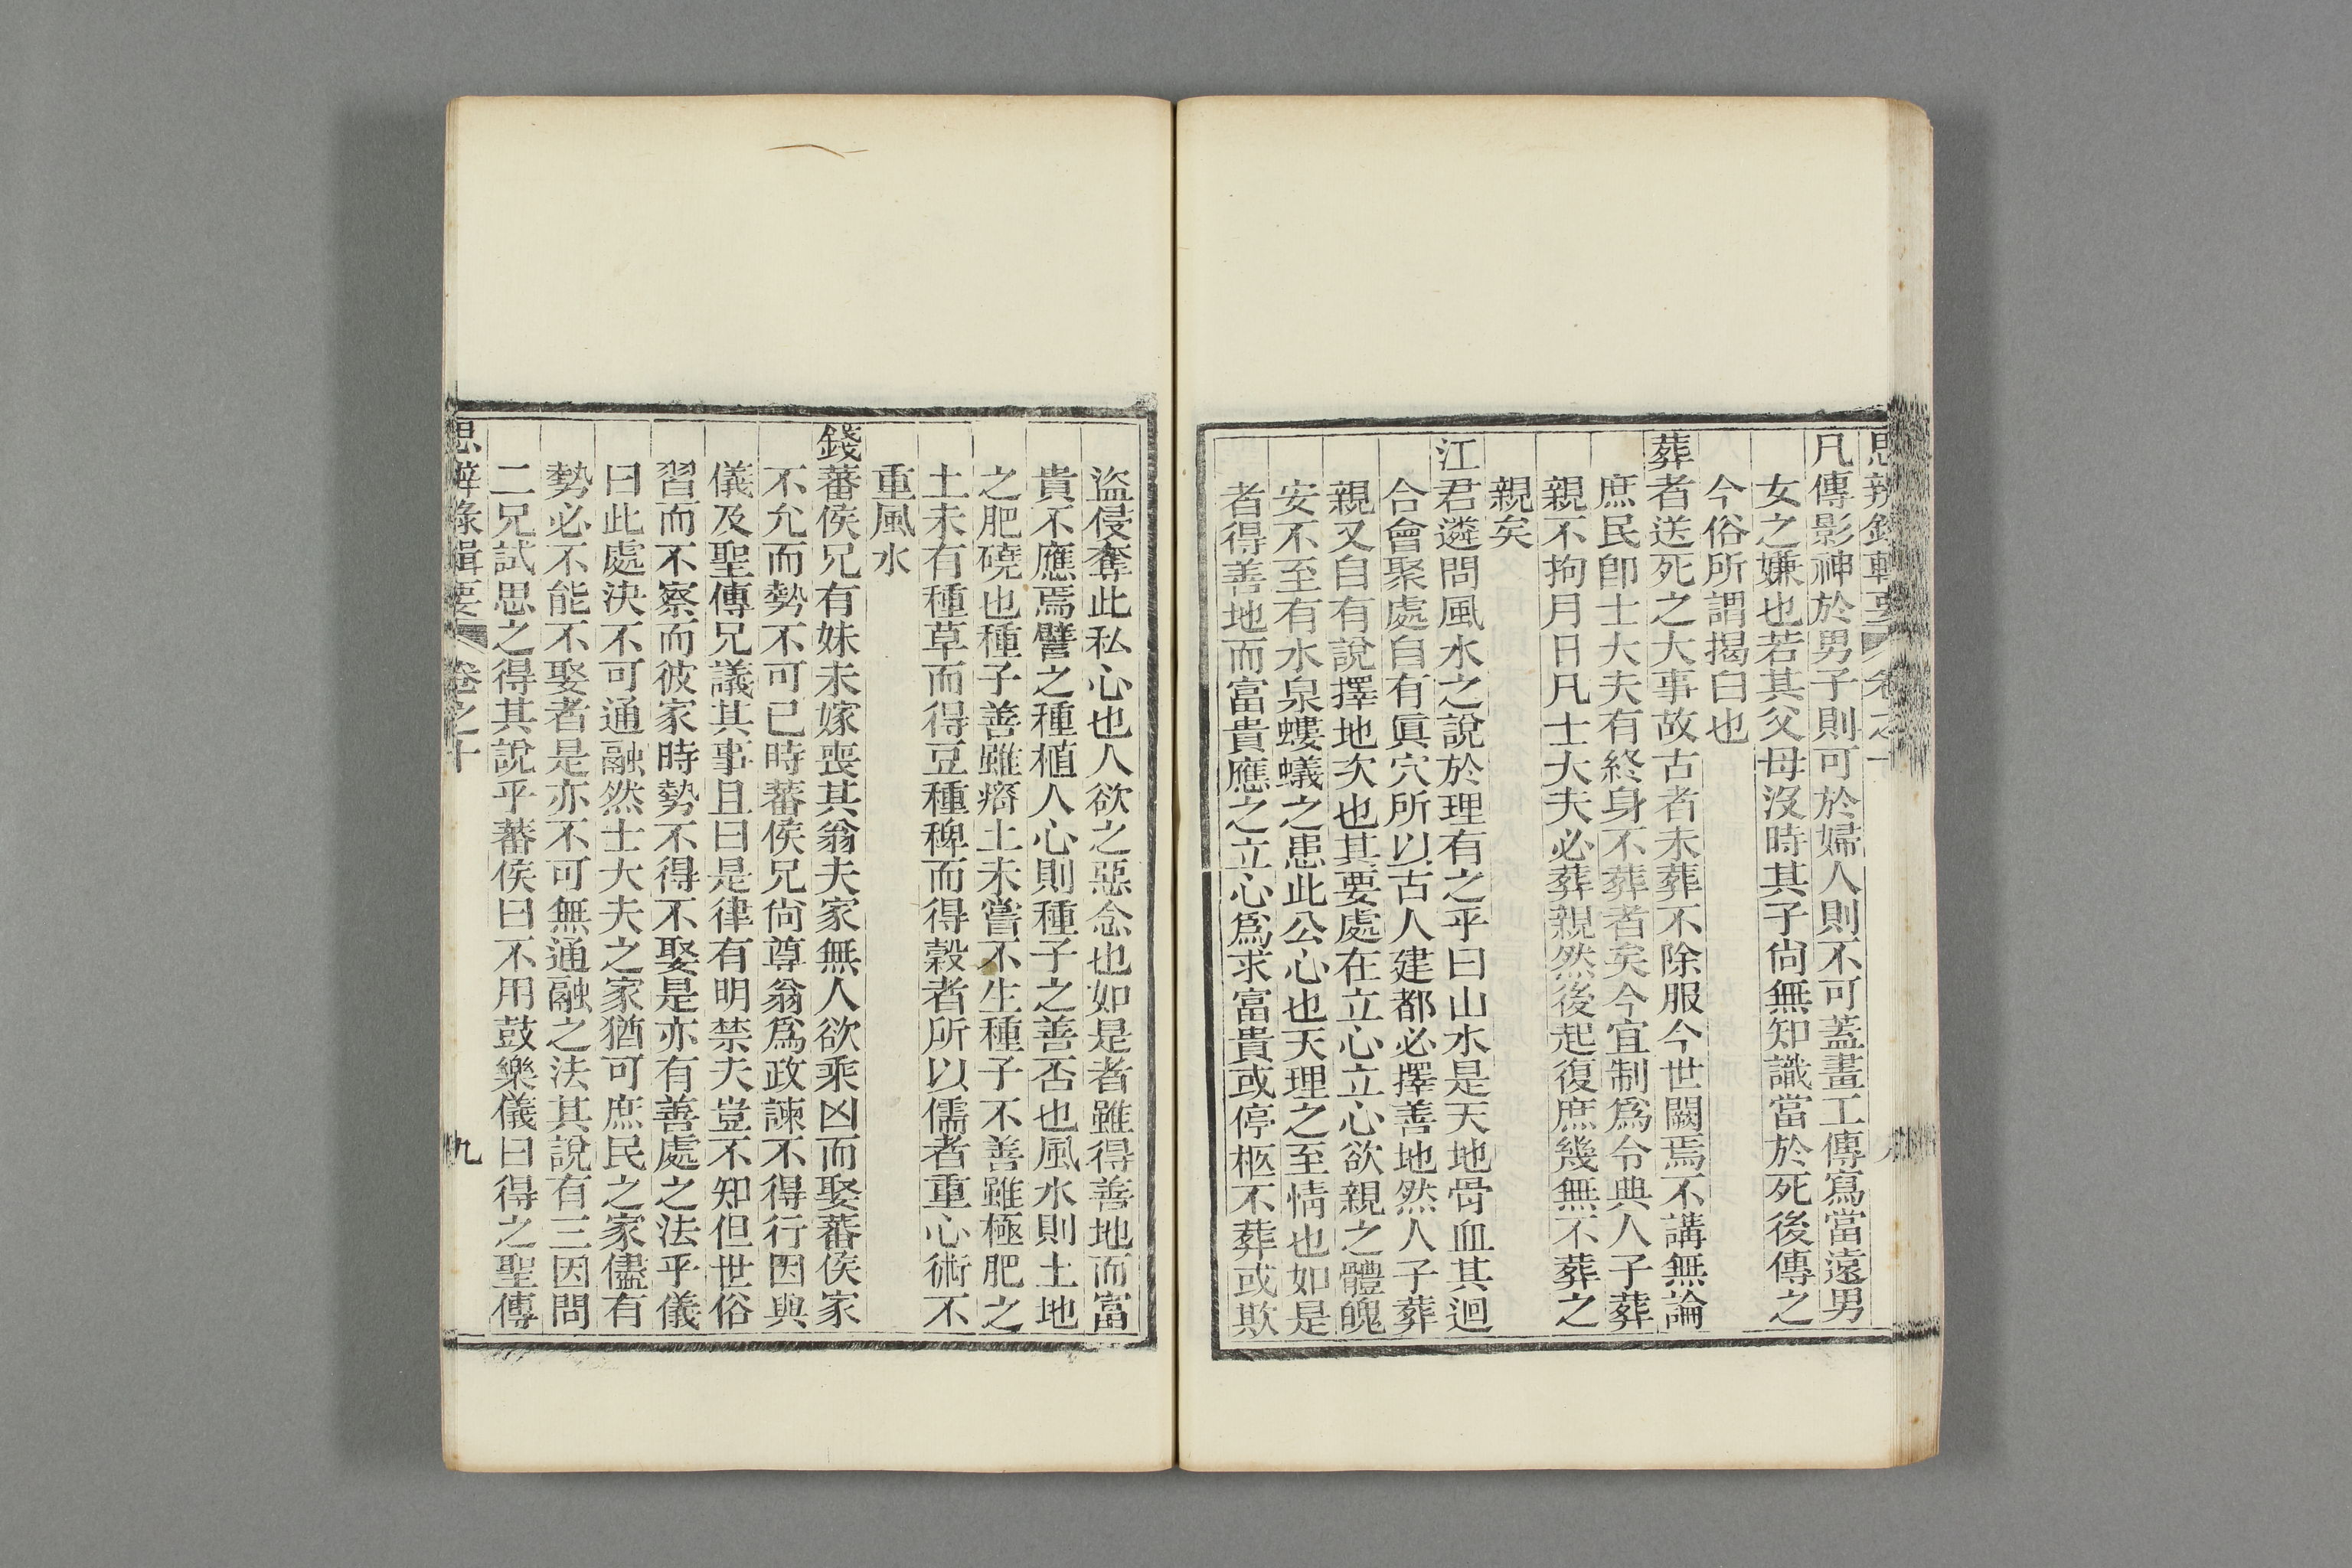 思辨錄輯要 卷之十
凡傳影神於男子則可於婦人則不可蓋畫工傳寫當遠男
女之嫌也若其父母沒時其子尙無知識當於死後傳之
今俗所謂揭白也
葬者送死之大事故古者未葬不除服今世闕焉不講無論
庶民卽士大夫有終身不葬者矣今宜制爲令典人子葬
親不拘月日凡士大夫必葬親然後起復庶幾無不葬之
親矣
江君遴問風水之說於理有之乎曰山水是天地骨血其迴
合會聚處自有眞穴所以古人建都必擇善地然人子葬
親又自有說擇地次也其要處在立心立心欲親之體魄
安不至有水泉螻蟻之患此公心也天理之至情也如是
者得善地而富貴應之立心爲求富貴或停柩不葬或欺
盜侵奪此私心也人欲之惡念也如是者雖得善地而富
貴不應焉譬之種植人心則種子之善否也風水則土地
之肥磽也種子善雖瘠土未嘗不生種子不善雖極肥之
土未有種草而得豆種稗而得穀者所以儒者重心術不
重風水
錢蕃侯兄有妹未嫁喪其翁夫家無人欲乘凶而娶蕃侯家
不允而勢不可已時蕃侯兄尙尊翁爲政諫不得行因與
儀及聖傳兄議其事且曰是律有明禁夫豈不知但世俗
習而不察而彼家時勢不得不娶是亦有善處之法乎儀
曰此處決不可通融然士大夫之家猶可庶民之家儘有
勢必不能不娶者是亦不可無通融之法其說有三因問
二兄試思之得其說乎蕃侯曰不用鼓樂儀曰得之聖傳
思辨錄輯要 卷之十 九